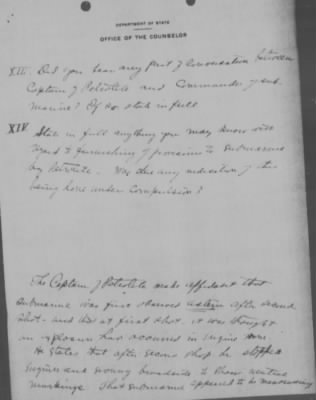 DEPARTMENT OF STATE
OFFICE OF THE COUNSELOR
XIII. Did you hear any part of conversation between
Captain of Petrolite and Commander of sub
marine? If so state in full
XIV State in full anything you may know with
regard to furnishing of provisions to submarine
by Petrolite. Was there any indication of this
being done under compulsion?
The Captain of Petrolite made affidavit that
submarine was first observed astern after second
shot - and that at first shot it was thought
an explosion had occurred in engine room
He states that after second shot he stopped
engines and swung broadside to show neutral
markings. That submarine appeared to be maneuvering